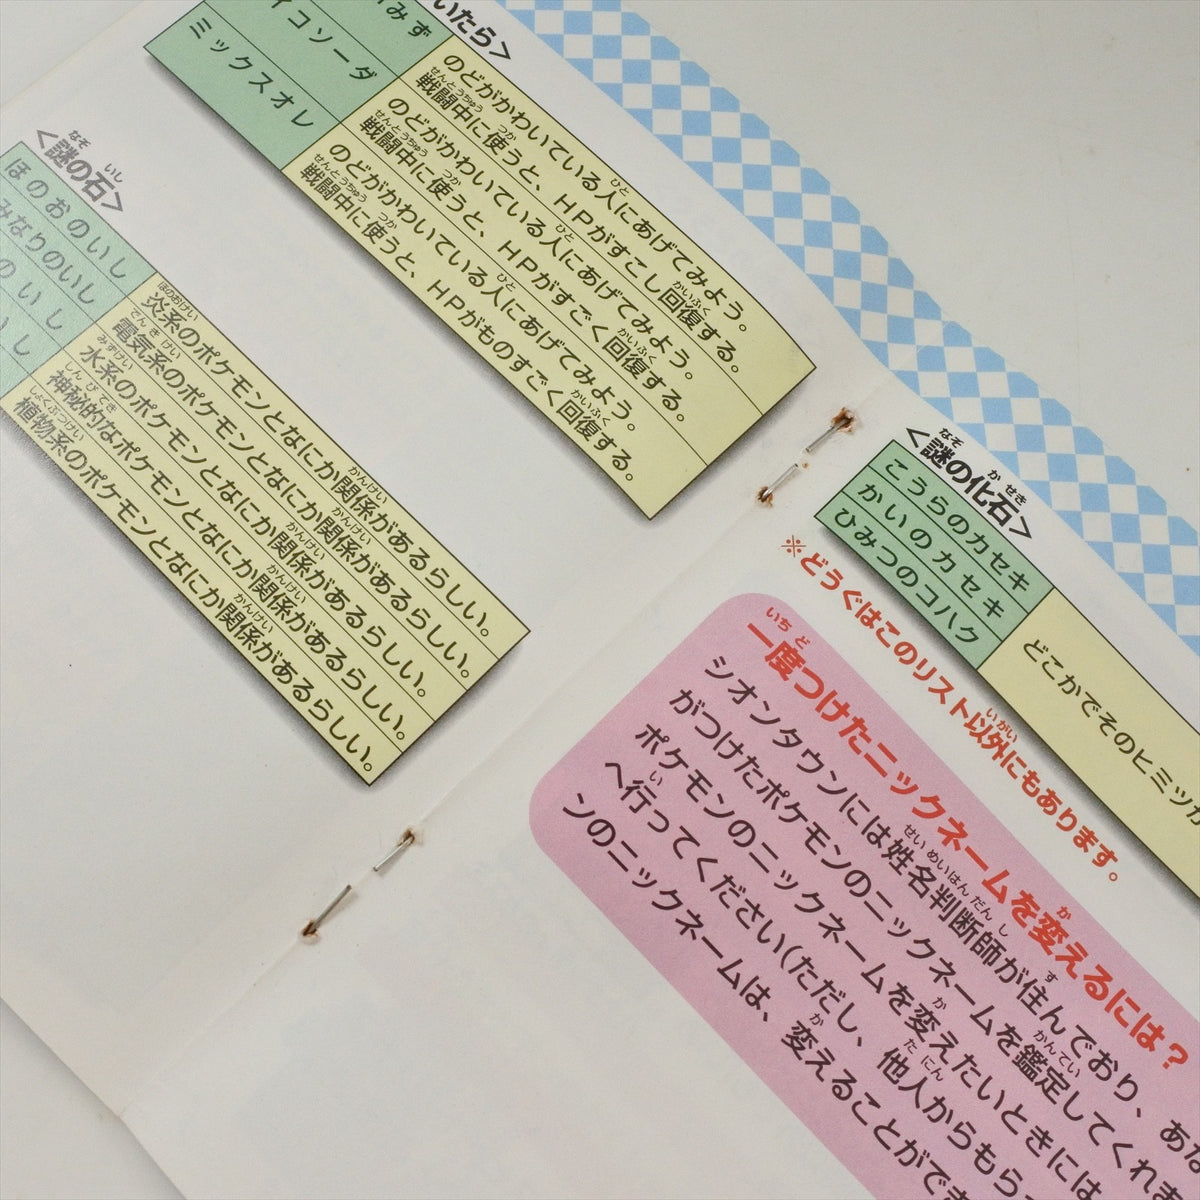 いたら>
みず
イコソーダ
ミックスオレ
のどがかわいている人にあげてみよう。
戦闘中に使うと、HPがすこし回復する。
のどがかわいている人にあげてみよう。
戦闘中に使うと、HPがすごく回復する。
のどがかわいている人にあげてみよう。
戦闘中に使うと、HPがものすごく回復する。
<謎の石>
ほのおのいし
みなりのいし
のいし
いし
炎系のポケモンとなにか関係があるらしい。
電気系のポケモンとなにか関係があるらしい。
水系のポケモンとなにか関係があるらしい。
神秘的なポケモンとなにか関係があるらしい。
植物系のポケモンとなにか関係があるらしい。
<謎の化石>
こうらのカセキ
かいのカセキ
ひみつのコハク
どこかでそのヒミツが
※どうぐはこのリスト以外にもあります。
一度つけたニックネームを変えるには?
シオンタウンには姓名判断師が住んでおり、あな
がつけたポケモンのニックネームを鑑定してくれま
ポケモンのニックネームを変えたいときには
へ行ってください(ただし、他人からもら
ンのニックネームは、変えることができ